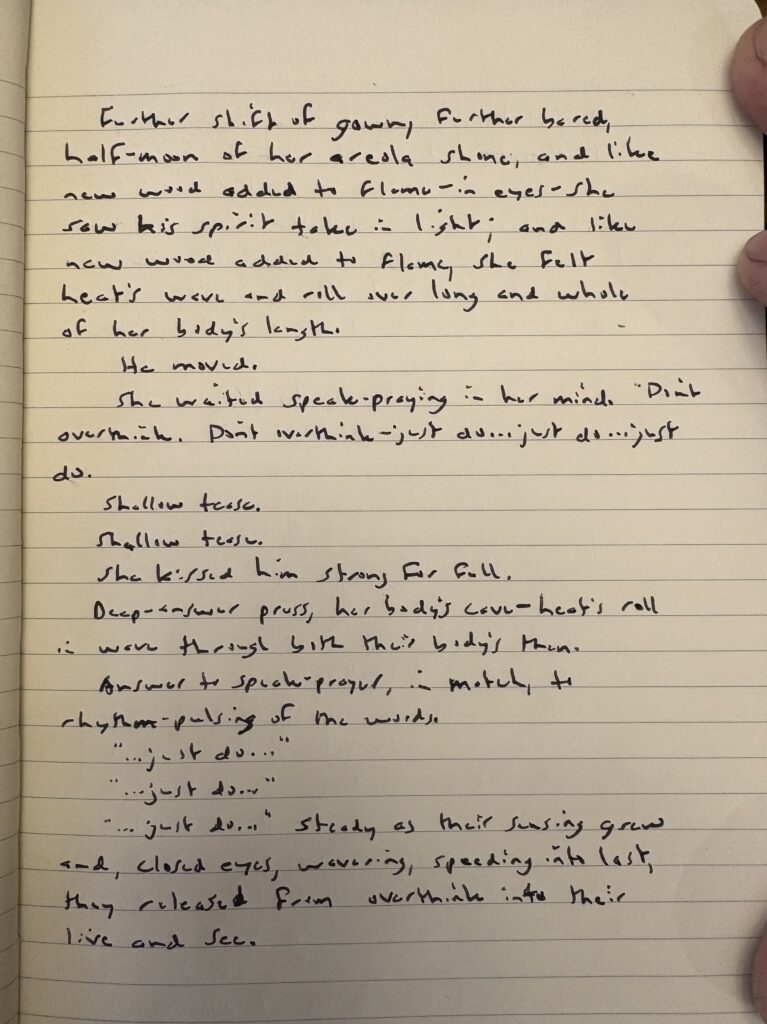 Further shift of gown, further bared,
half-moon of her areola shone, and like
new wood added to flame—in eyes—she
saw his spirit take in light; and like
new wood added to flame, she felt
heat's wave and roll over long and whole
of her body's length.
He moved.
She waited speak-praying in her mind. "Don't
overthink. Don't overthink—just do...just do...just
do.
Shallow tease.
Shallow tease.
She kissed him strong for full.
Deep-answer press, her body's cave-heat's roll
in wave through both their body's then.
Answer to speak-prayer, in match, to
rhythm-pulsing of the words.
"...just do..."
"...just do..."
"...just do..." Steady as their sensing grew
and, closed eyes, wavering, speeding into last,
they released from overthink into their
live and see.